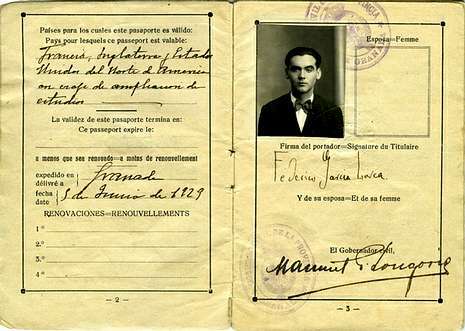 Países para los cuales este pasaporte es válido:
Pays pour lesquels ce passeport est valable:
Francia, Inglaterra y Estados
Unidos del Norte d America
en viaje de ampliacion de
estudios
La validez de este pasaporte termina en:
Ce passeport expire le:
a menos que sea renovado=a moins de renouvellement
expedido en
délivré a
Granada
fecha
date
5 de Junio de 1929
RENOVACIONES=RENOUVELLEMENTS
1º
2º
3º
4º
- 2 -
Esposa=Femme
Firma del portador=Signature du Titulaire
Federico García Lorca
Y de su esposa=Et de sa femme
El Gobernador civil,
Manuel
- 3 -